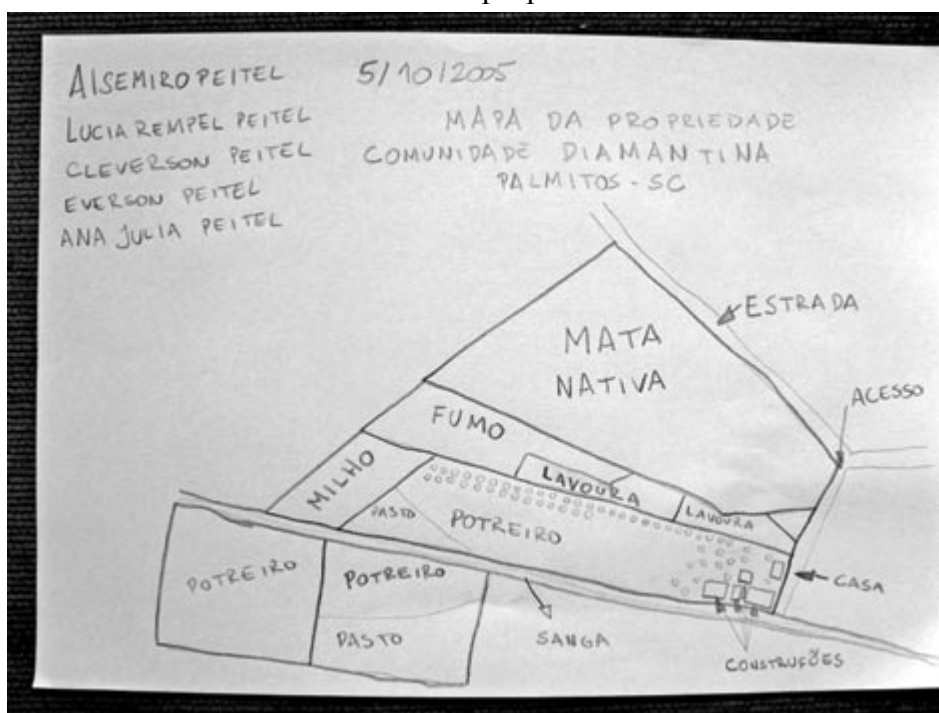 ALSEMIRO PEITEL
5/10/2005
LUCIA REMPEL PEITEL
CLEVERSON PEITEL
EVERSON PEITEL
ANA JULIA PEITEL
MAPA DA PROPRIEDADE
COMUNIDADE DIAMANTINA
PALMITOS - SC
ESTRADA
MATA
NATIVA
ACESSO
FUMO
MILHO
LAVOURA
LAVOURA
PASTO
POTREIRO
POTREIRO
POTREIRO
CASA
PASTO
SANGA
CONSTRUÇÕES